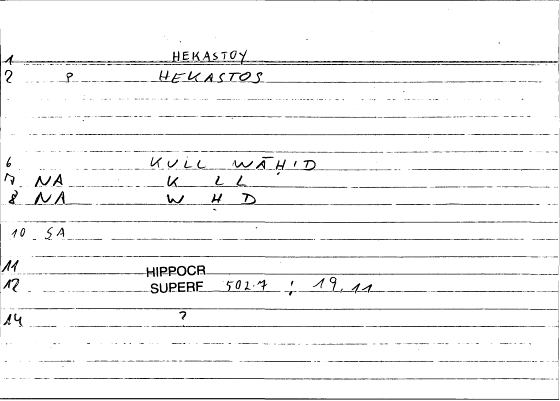 1 HEKASTOY
2 P HEKASTOS
6 KULL WĀḤID
7 NA K L L
8 NA W Ḥ D
10 ṢA
11 HIPPOCR
12 SUPERF 502.7 ; 19.11
14 ?